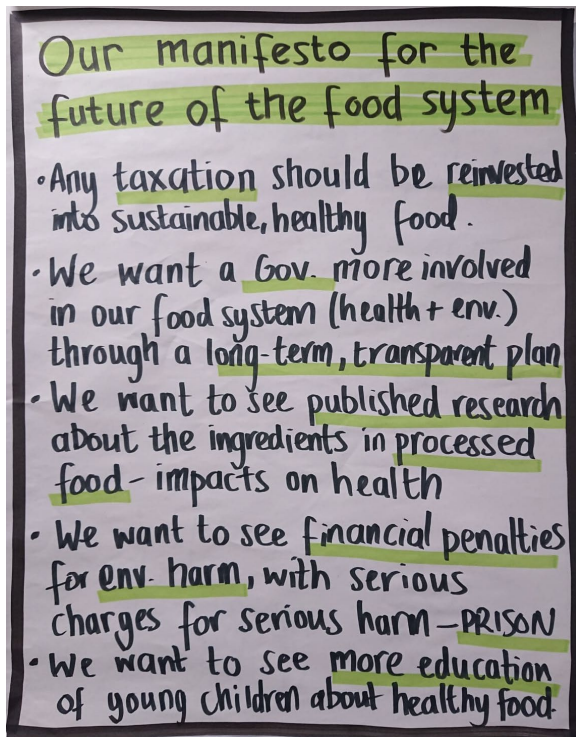 Our manifesto for the
future of the food system
• Any taxation should be reinvested
into sustainable, healthy food.
• We want a Gov. more involved
in our food system (health + env.)
through a long-term, transparent plan
• We want to see published research
about the ingredients in processed
food - impacts on health
• We want to see financial penalties
for env. harm, with serious
charges for serious harm - PRISON
• We want to see more education
of young children about healthy food